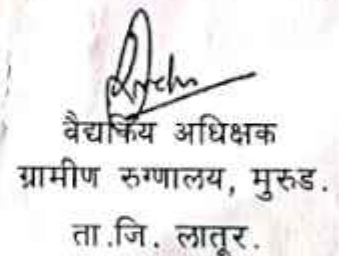 वैद्यकिय अधिक्षक
ग्रामीण रुग्णालय, मुरुड.
ता.जि. लातूर.